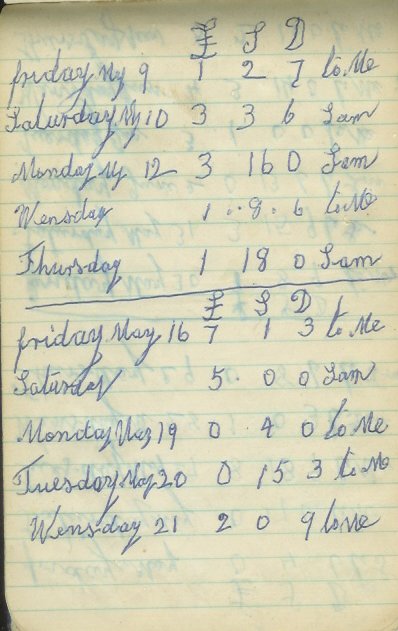 £ S D
friday My 9 1 2 7 to Me
Saturday My 10 3 3 6 Sam
Monday My 12 3 16 0 Sam
Wensday 1 .. 8 . 6 to Me
Thursday 1 18 0 Sam
£ S D
friday May 16 7 1 3 to Me
Saturday 5 . 0 0 Sam
Monday May 19 0 . 4 0 to Me
Tuesday May 20 0 15 3 to Me
Wensday 21 2 0 9 to Me